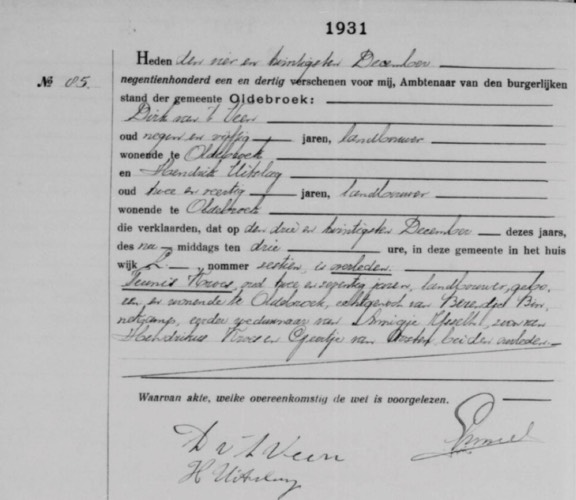 1931
Heden den vier en twintigsten December
№ 85. negentienhonderd een en dertig verschenen voor mij, Ambtenaar van den burgerlijken
stand der gemeente Oldebroek:
Dirk van 't Veen
oud negen en vijftig jaren, landbouwer
wonende te Oldebroek
en Hendrik Uitslag
oud twee en veertig jaren, landbouwer
wonende te Oldebroek
die verklaarden, dat op den drie en twintigsten December dezes jaars,
des na middags ten drie ure, in deze gemeente in het huis
wijk L nommer zestien, is overleden:
Teunis Kroes, oud twee en zeventig jaren, landbouwer, gebo-
ren en wonende te Oldebroek, echtgenoot van Berendje Bin-
nekamp, eerder weduwnaar van IJssel, zoon van
Hendrikus Kroes en van beiden overleden
Waarvan akte, welke overeenkomstig de wet is voorgelezen.
D v 't Veen
H Uitslag